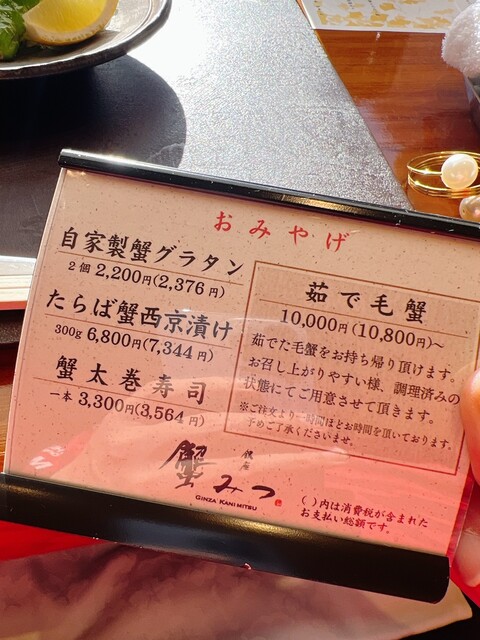 おみやげ
自家製蟹グラタン
2個 2,200円(2,376円)
たらば蟹西京漬け
300g 6,800円(7,344円)
蟹太巻寿司
一本 3,300円(3,564円)
茹で毛蟹
10,000円(10,800円)~
茹でた毛蟹をお持ち帰り頂けます。
お召し上がりやすい様、調理済みの
状態にてご用意させて頂きます。
※ご注文より一時間ほどお時間を頂いております。
予めご了承くださいませ。
銀座
蟹みつ
GINZA KANI MITSU
( )内は消費税が含まれた
お支払い総額です。